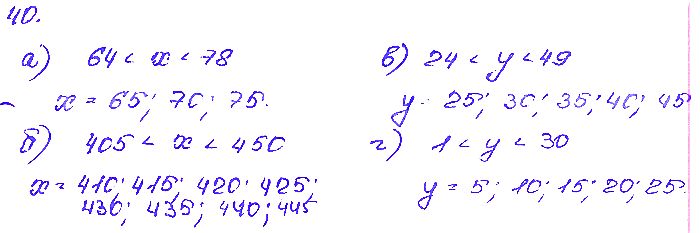 40.
а) 64 < x < 78
x = 65; 70; 75.
б) 405 < x < 450
x = 410; 415; 420; 425;
430; 435; 440; 445
в) 24 < y < 49
y = 25; 30; 35; 40; 45
г) 1 < y < 30
y = 5; 10; 15; 20; 25.